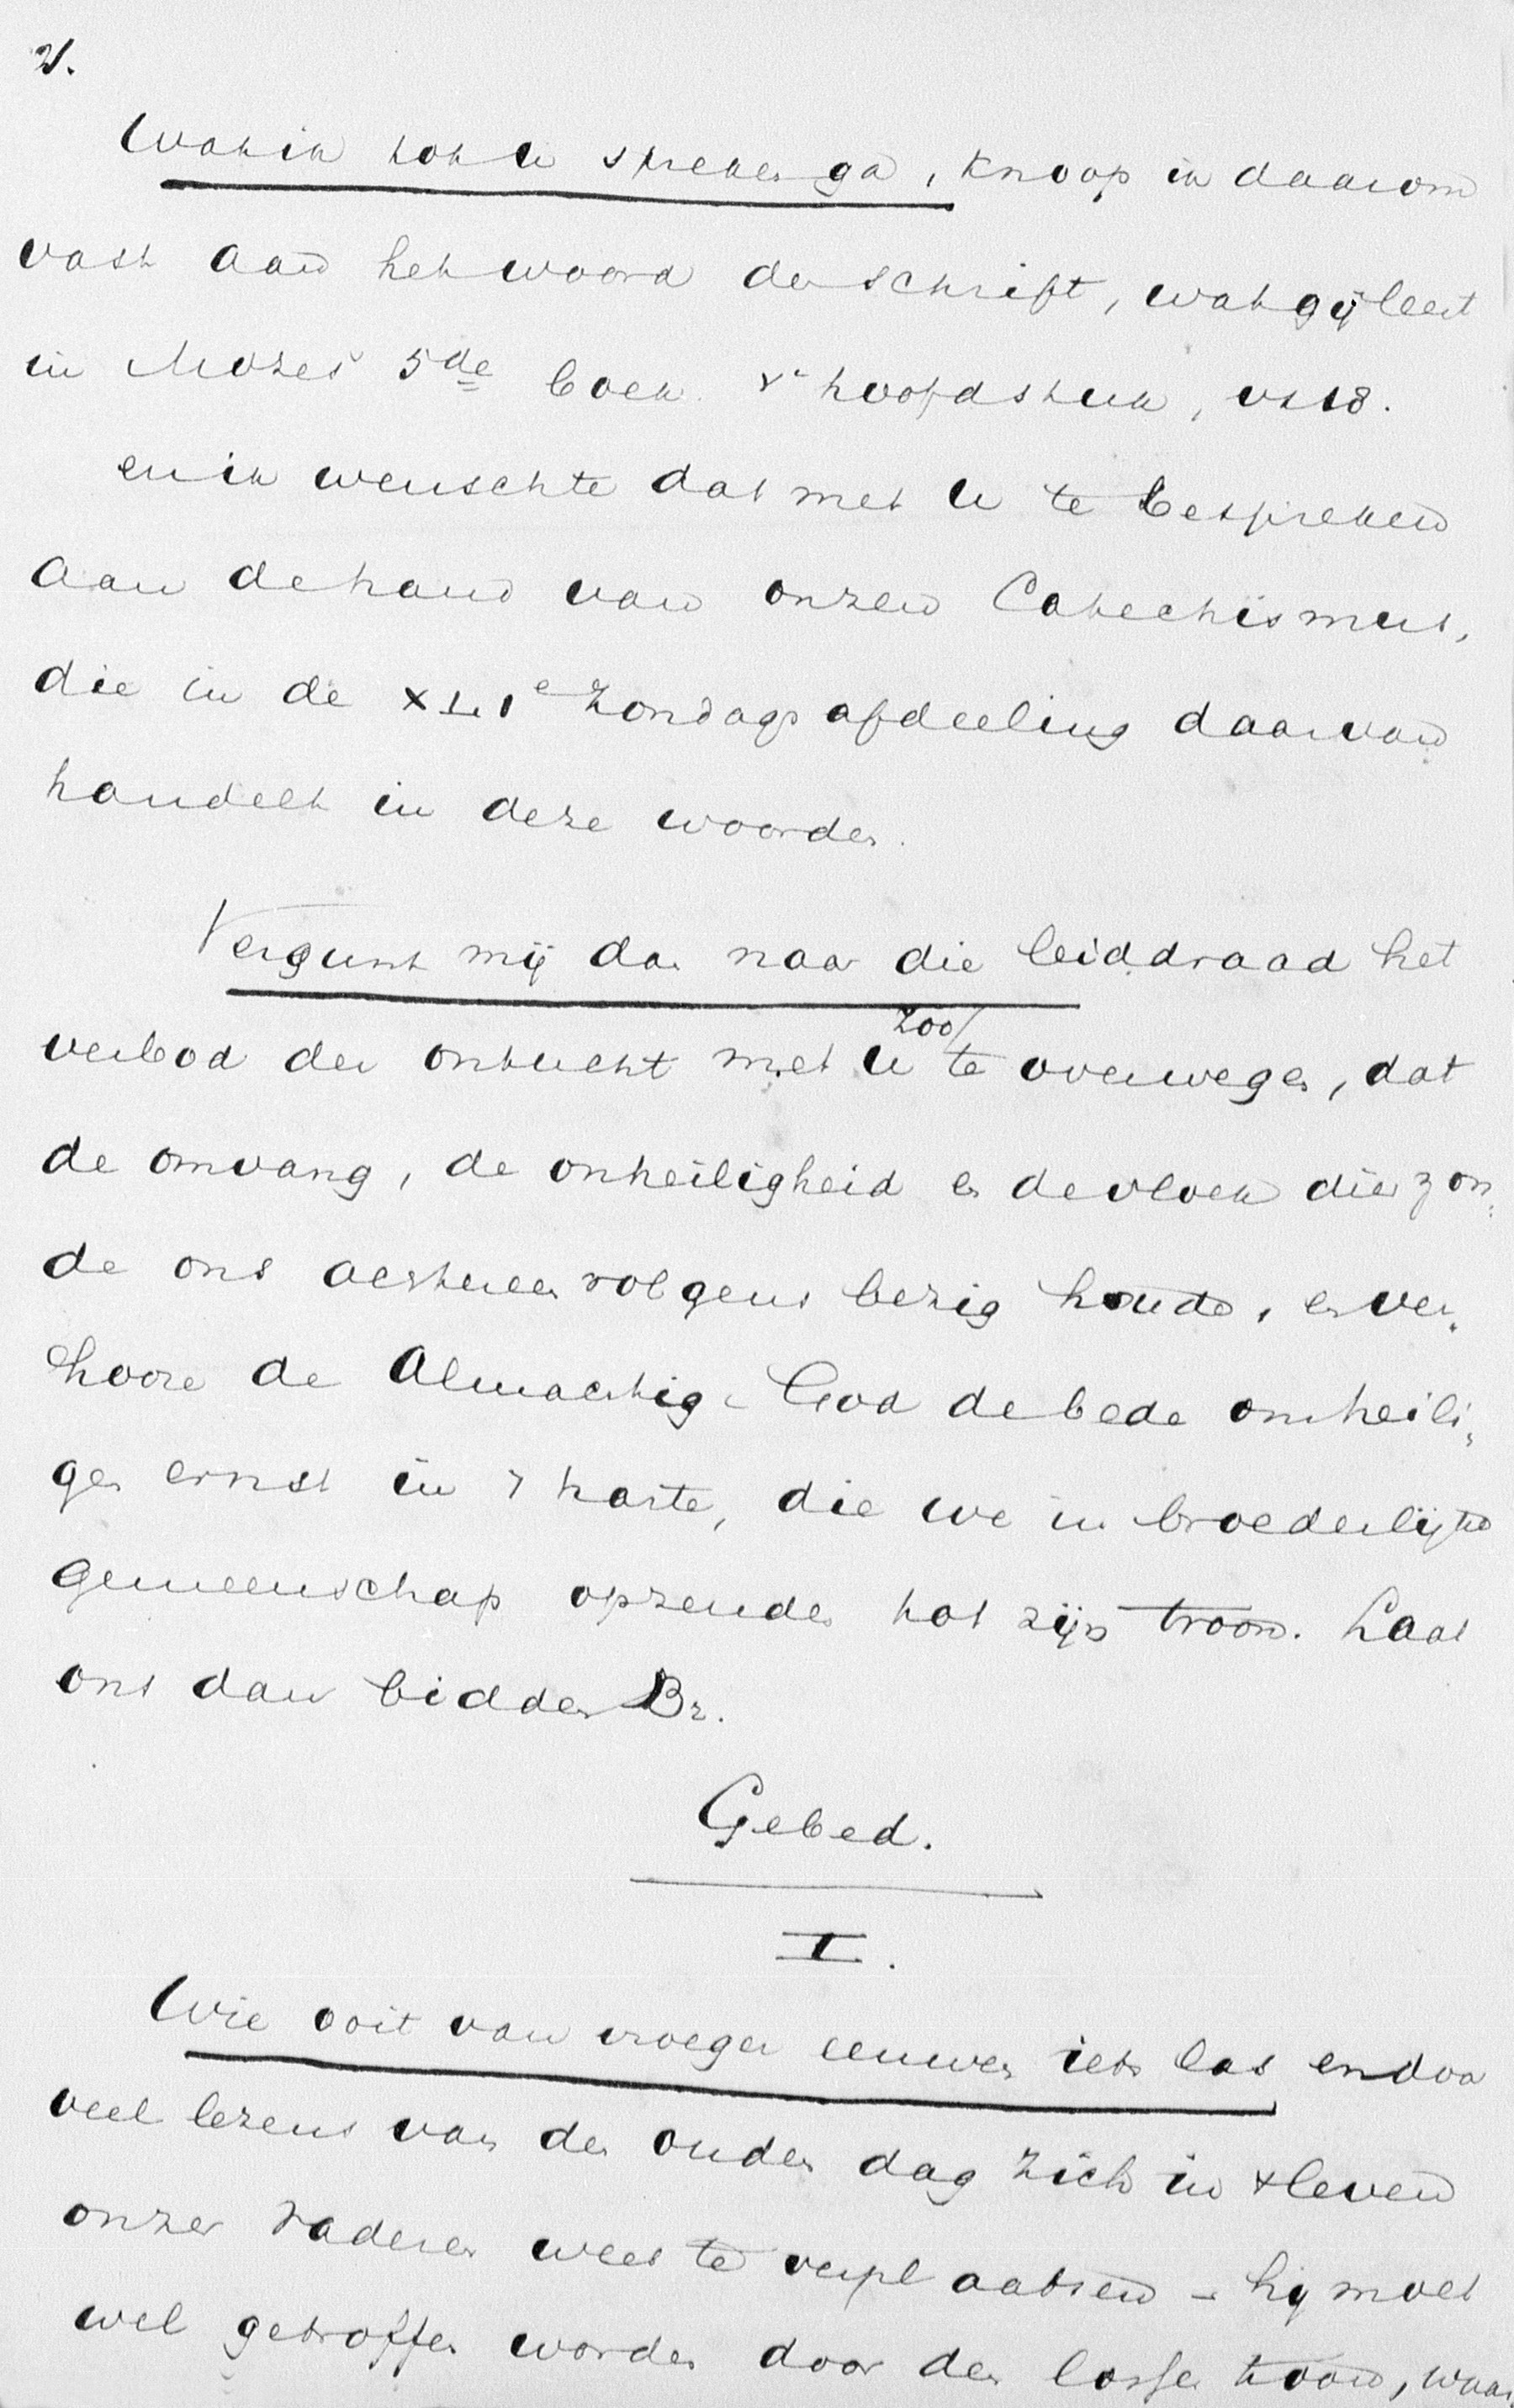 2.
Wat ik tot U spreken ga, knoop ik daarom
vast aan het woord der schrift, wat gij leest
in Mozes 5de boek. 5e hoofdstuk, vs 18.
en ik wenschte dat met U te bespreken
aan de hand van onzen Catechismus,
die in de XLIe Zondags afdeeling daarvan
handelt in deze woorden.
Vergunt mij dan naar die leiddraad het
verbod der ontucht met U zoo te overwegen, dat
de omvang, de onheiligheid en de vloek dier zon-
de ons achtereenvolgens bezig houde, en ver-
hoore de Almachtige God de bede om heili-
gen ernst in 't harte, die we in broederlijke
gemeenschap opzenden tot zijn troon. Laat
ons dan bidden Br.
Gebed.
I.
Wie ooit van vroeger eeuwen iets las en door
veel lezens van den ouden dag zich in 't leven
onzer vaderen weet te verplaatsen – hij moet
wel getroffen worden door den lossen toon, waar